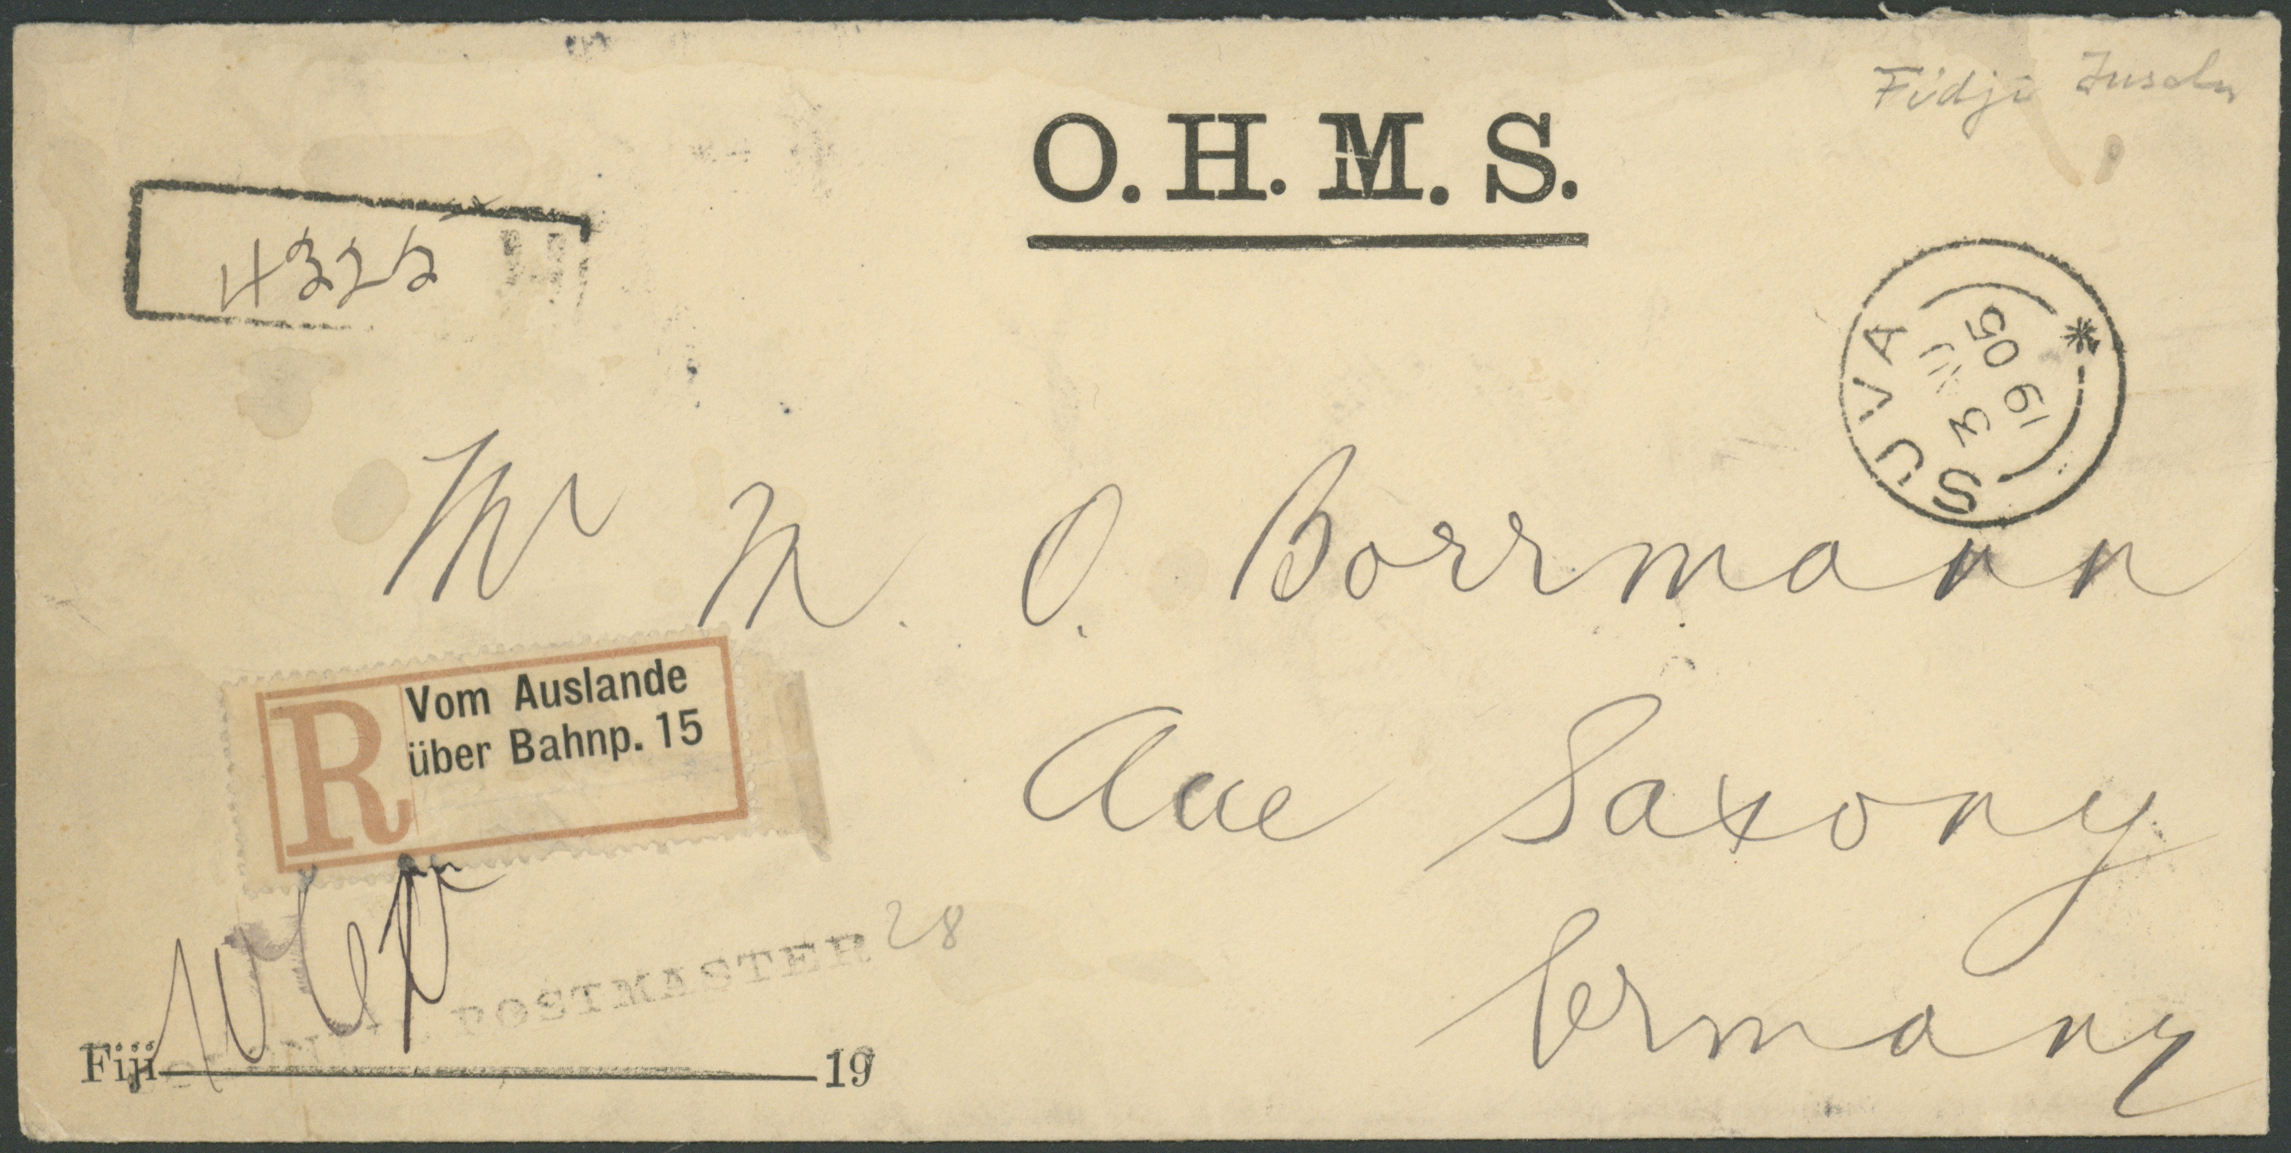 Fidji Inseln
O. H. M. S.
4322
SUVA
3
19 05
Mr M. O. Borrmann
R
Vom Auslande
über Bahnp. 15
Aue Saxony
Germany
POSTMASTER
28
Fiji 19